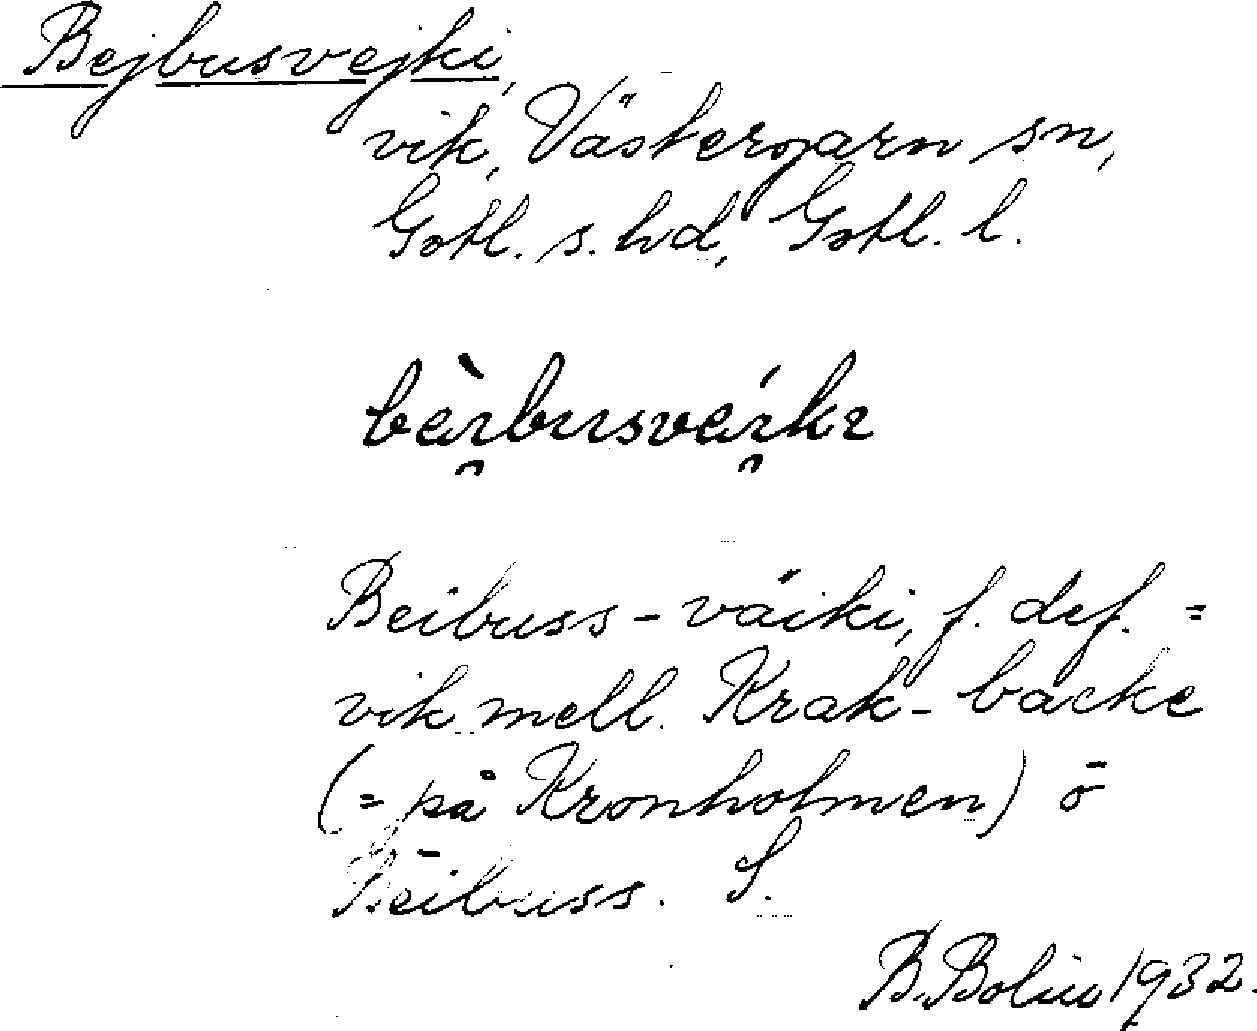 Bejbusvejki,
vik, Västergarn sn,
Gotl. s. hd, Gotl. l.
bèi̯busvéi̯kı
Beibuss-väiki, f. def. =
vik mell. Krak-backe
(= på Kronholmen) ō
Bēibuss. S.
B. Bolin 1932.